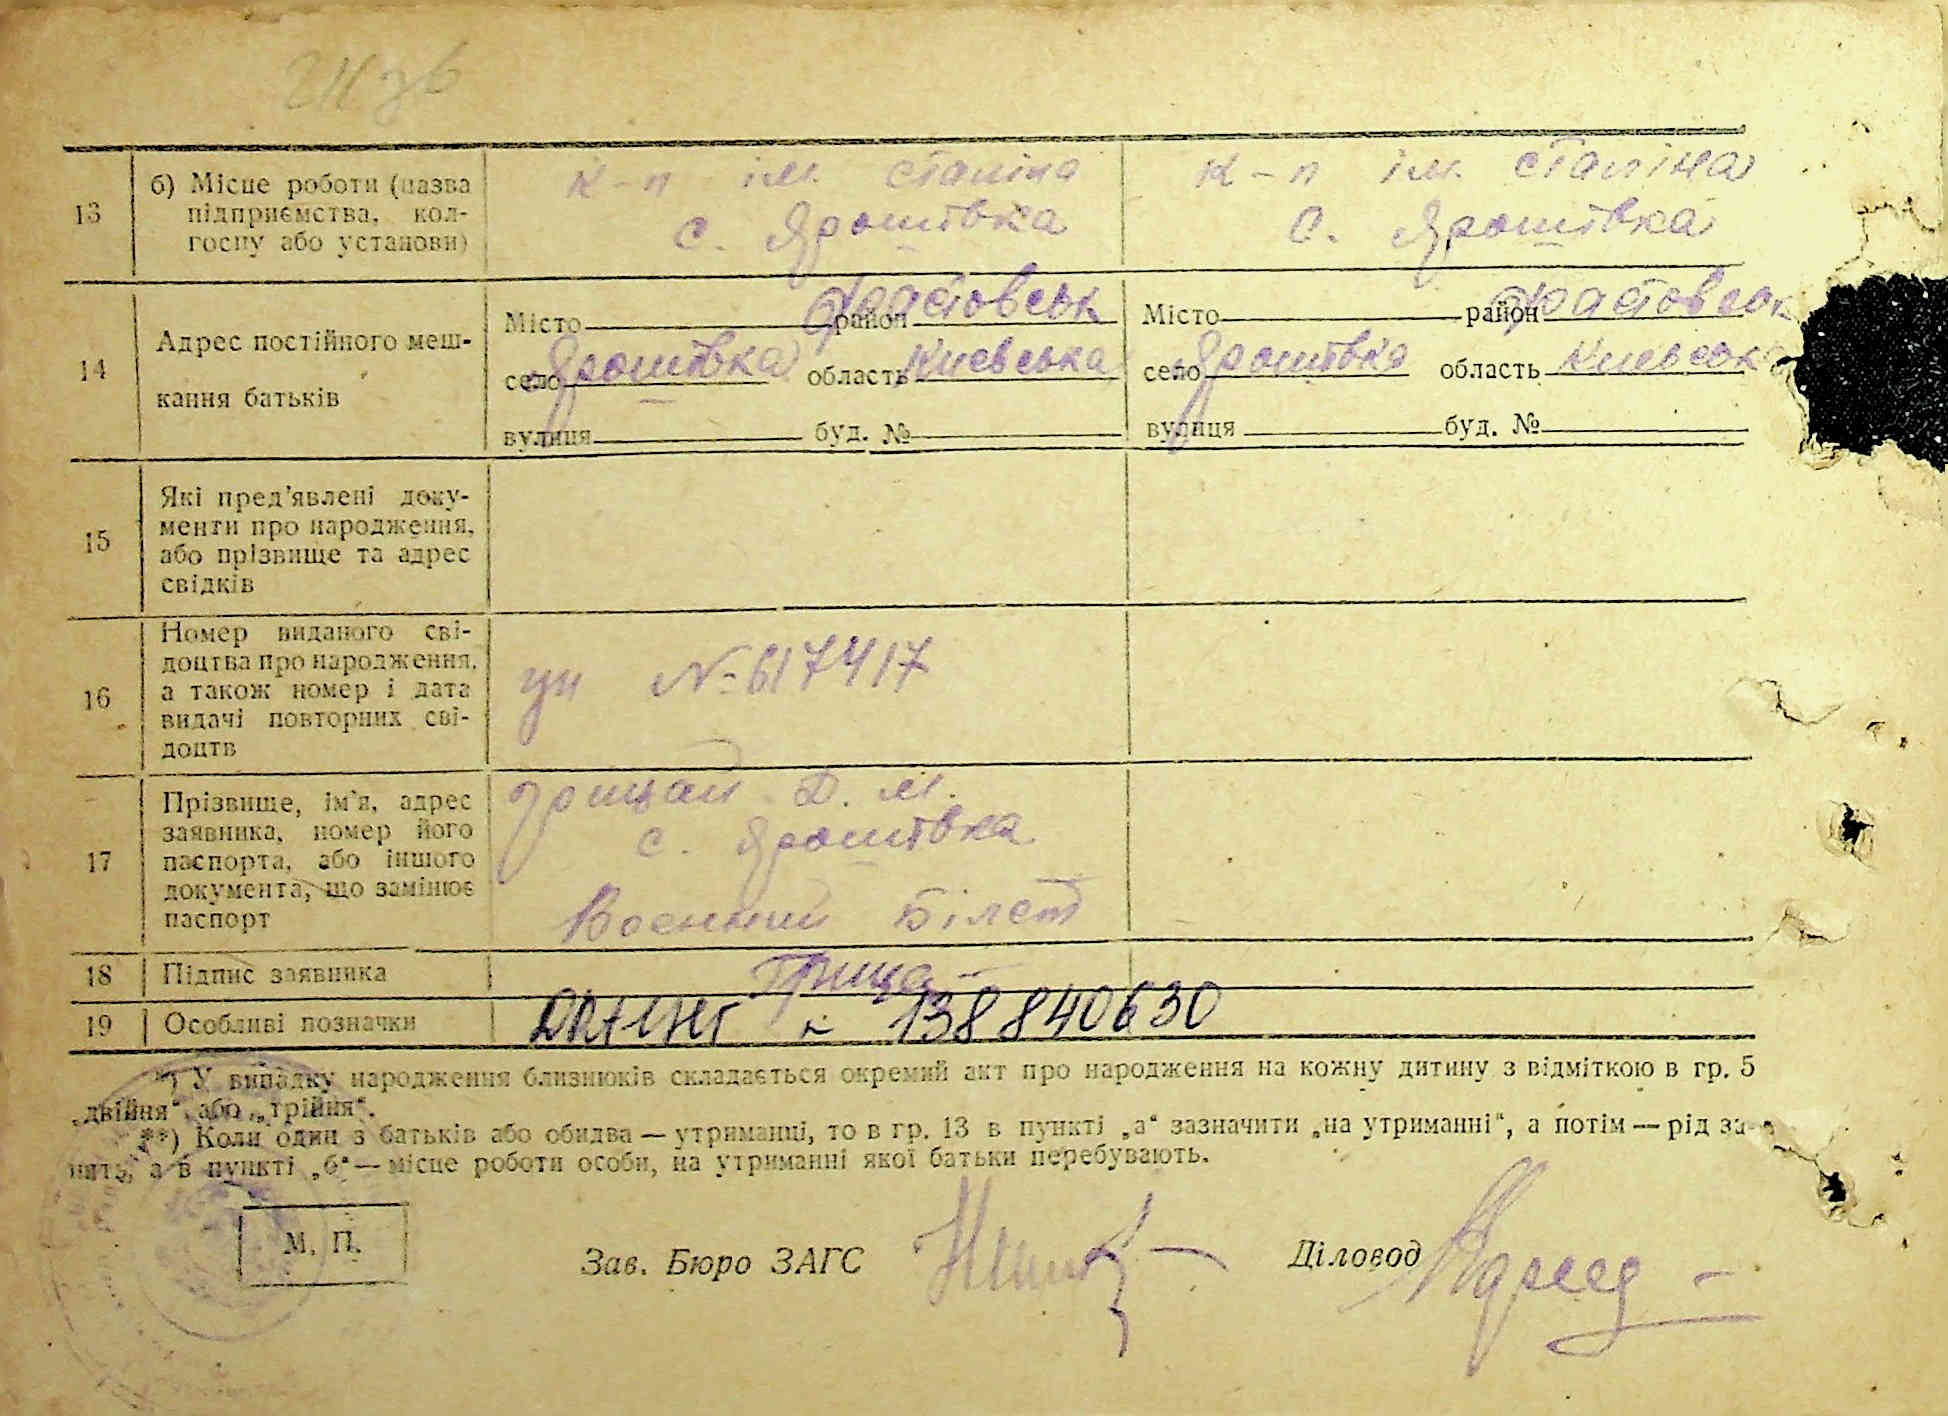 13 б) Місце роботи (назва підприємства, колгоспу або установи)
к-п ім. Сталіна
с. Ярошівка
к-п ім. Сталіна
с. Ярошівка
14 Адрес постійного мешкання батьків
Місто район Фастовськ
село Ярошівка область Киевська
вулиця буд. №
Місто район Фастовськ
село Ярошівка область Киевськ
вулиця буд. №
15 Які пред'явлені документи про народження, або прізвище та адрес свідків
16 Номер виданого свідоцтва про народження, а також номер і дата видачі повторних свідоцтв
№ 617417
17 Прізвище, ім'я, адрес заявника, номер його паспорта, або іншого документа, що замінює паспорт
Грицай Д. М.
с. Ярошівка
Военний Білет
18 Підпис заявника
19 Особливі позначки
138840630
*) У випадку народження близнюків складається окремий акт про народження на кожну дитину з відміткою в гр. 5
„двійня“ або „трійня“.
**) Коли один з батьків або обидва — утриманці, то в гр. 13 в пункті „а“ зазначити „на утриманні“, а потім — рід за-
нять, а в пункті „б“ — місце роботи особи, на утриманні якої батьки перебувають.
М. П.
Зав. Бюро ЗАГС
Діловод